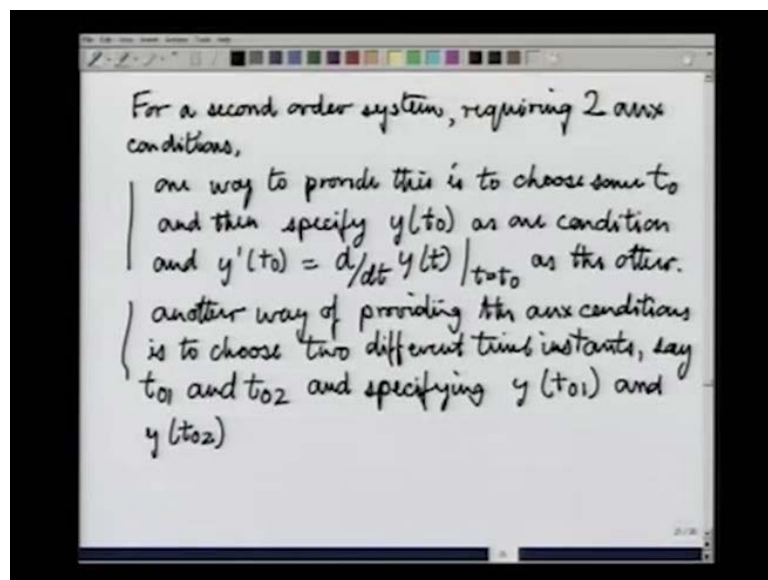 For a second order system, requiring 2 aux
conditions,
one way to provide this is to choose some t₀
and then specify y(t₀) as one condition
and y'(t₀) = d/dt y(t)|t=t₀ as the other.
another way of providing the aux conditions
is to choose two different time instants, say
t₀₁ and t₀₂ and specifying y(t₀₁) and
y(t₀₂)